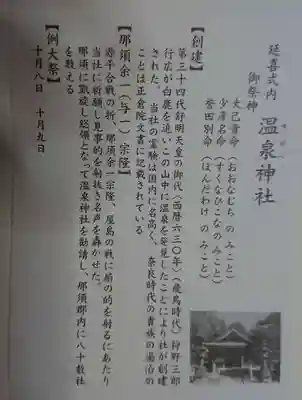 延喜式内 温泉神社
御祭神
大己貴命（おおなむちのみこと）
少彦名命（すくなひこなのみこと）
誉田別命（ほんだわけのみこと）
【創建】
第三十四代舒明天皇の御代（西暦六三〇年）（飛鳥時代）狩野三郎
行広が白鹿を追いこの山中に温泉を発見したことにより社が創建
された。 当社の霊験は国内に名高く、奈良時代の貴族の湯治の
ことは正倉院文書に記載されている
【那須余一（与一）宗隆】
源平合戦の折、那須余一宗隆、屋島の戦に扇の的を射るにあたり
当社に祈願し見事的を射抜き名声を轟かせた。
那須に凱旋し総領となって温泉神社を勧請し、那須郡内に八十数社
を数える
【例大祭】
十月八日 十月九日